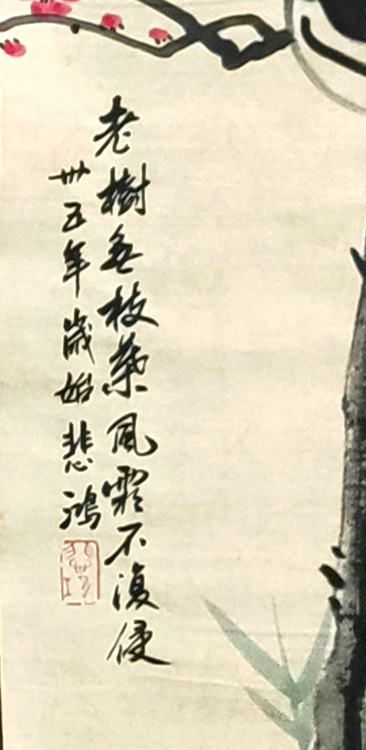 老樹無枝葉風霜不復侵
卅五年歲始悲鴻